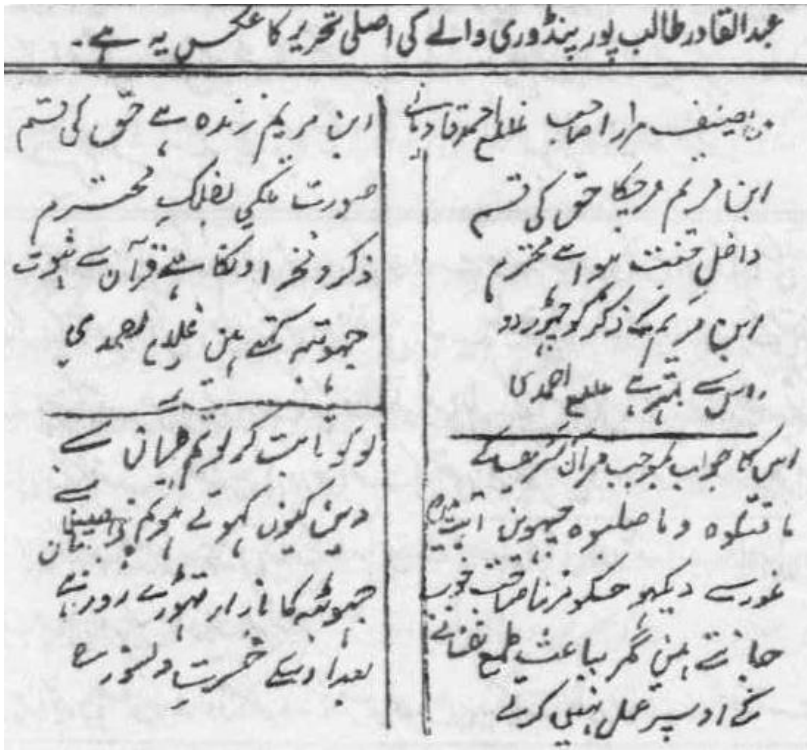 عبدالقادر طالب پور پنڈوری والے کی اصلی تحریر کا عکس یہ ہے۔
تصنیف مرزا صاحب غلام احمد قادیانی
ابن مریم مر چکا حق کی قسم
داخل جنت ہوا ہے محترم
ابن مریم کے ذکر کو چھوڑ دو
اس سے بہتر ہے غلام احمد
اس کا جواب بموجب قرآن شریف کے
ما قتلوه وما صلبوه
غور سے دیکھو جسکو فرقا
جانتے ہیں مگر بباعث طمع نفسانی
کے اوسپر عمل نہیں کرتے
ابن مریم زندہ ہے حق کی قسم
صورت ملکی بفلک محترم
ذکر و فخر اونکا ہے قرآن سے ثبوت
جھوٹھ کہتے ہیں غلام احمدی
لوکو
دین کیوں کھوتے ہو تم
جھوٹھ کا بازار تھوڑے روز ہے
بعد اوسکے حسرت دلسوز ہے